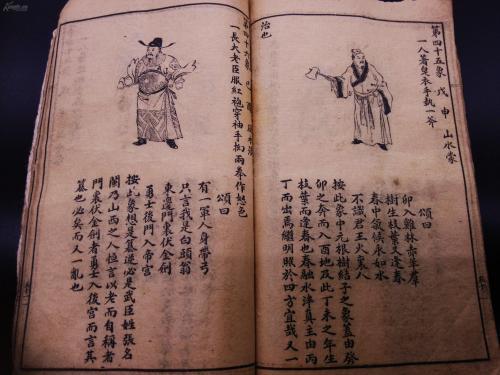 第四十五象 戊申 山水蒙
一人著皂衣手執一斧
頌曰
卯入雞林赤草群
樹生枝葉又逢春
春中氣候永如水
不識君王火東人
按此象中元根樹結子之象蓋由癸
卯之奔而入酉地及此丁未之年生
枝葉而逢春也春融水泮真主由丙
丁而出焉繼明照於四方宜哉又一
治也
第四十六象 酉
一長大老臣服紅袍穿袖手掏兩拳作怒色
頌曰
有一軍人身帶弓
只言我是白頭翁
東邊門裏伏金劍
勇士後門入帝宮
按此象想是篡逆必是武臣姓張名
乃山西之人位言以老而自稱者
門裏伏金劍者勇士入後宮而言其
篡也必矣而又一亂也